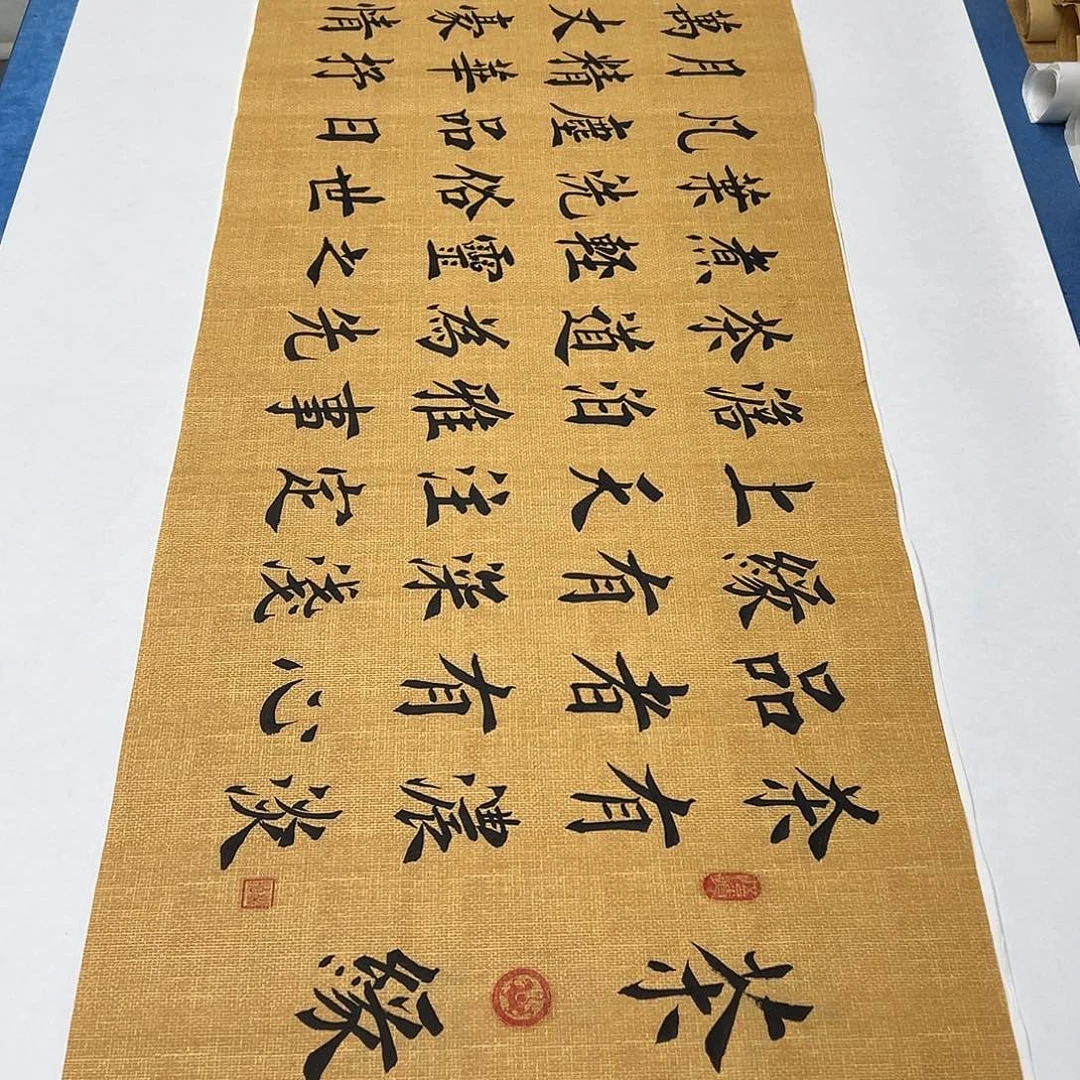 茶緣
茶有濃淡
品者有心
緣有深淺
上天注定
澹泊雅事
茶道為先
煮輕靈之
葉洗俗世
凡塵品日
月精華抒
萬丈豪情